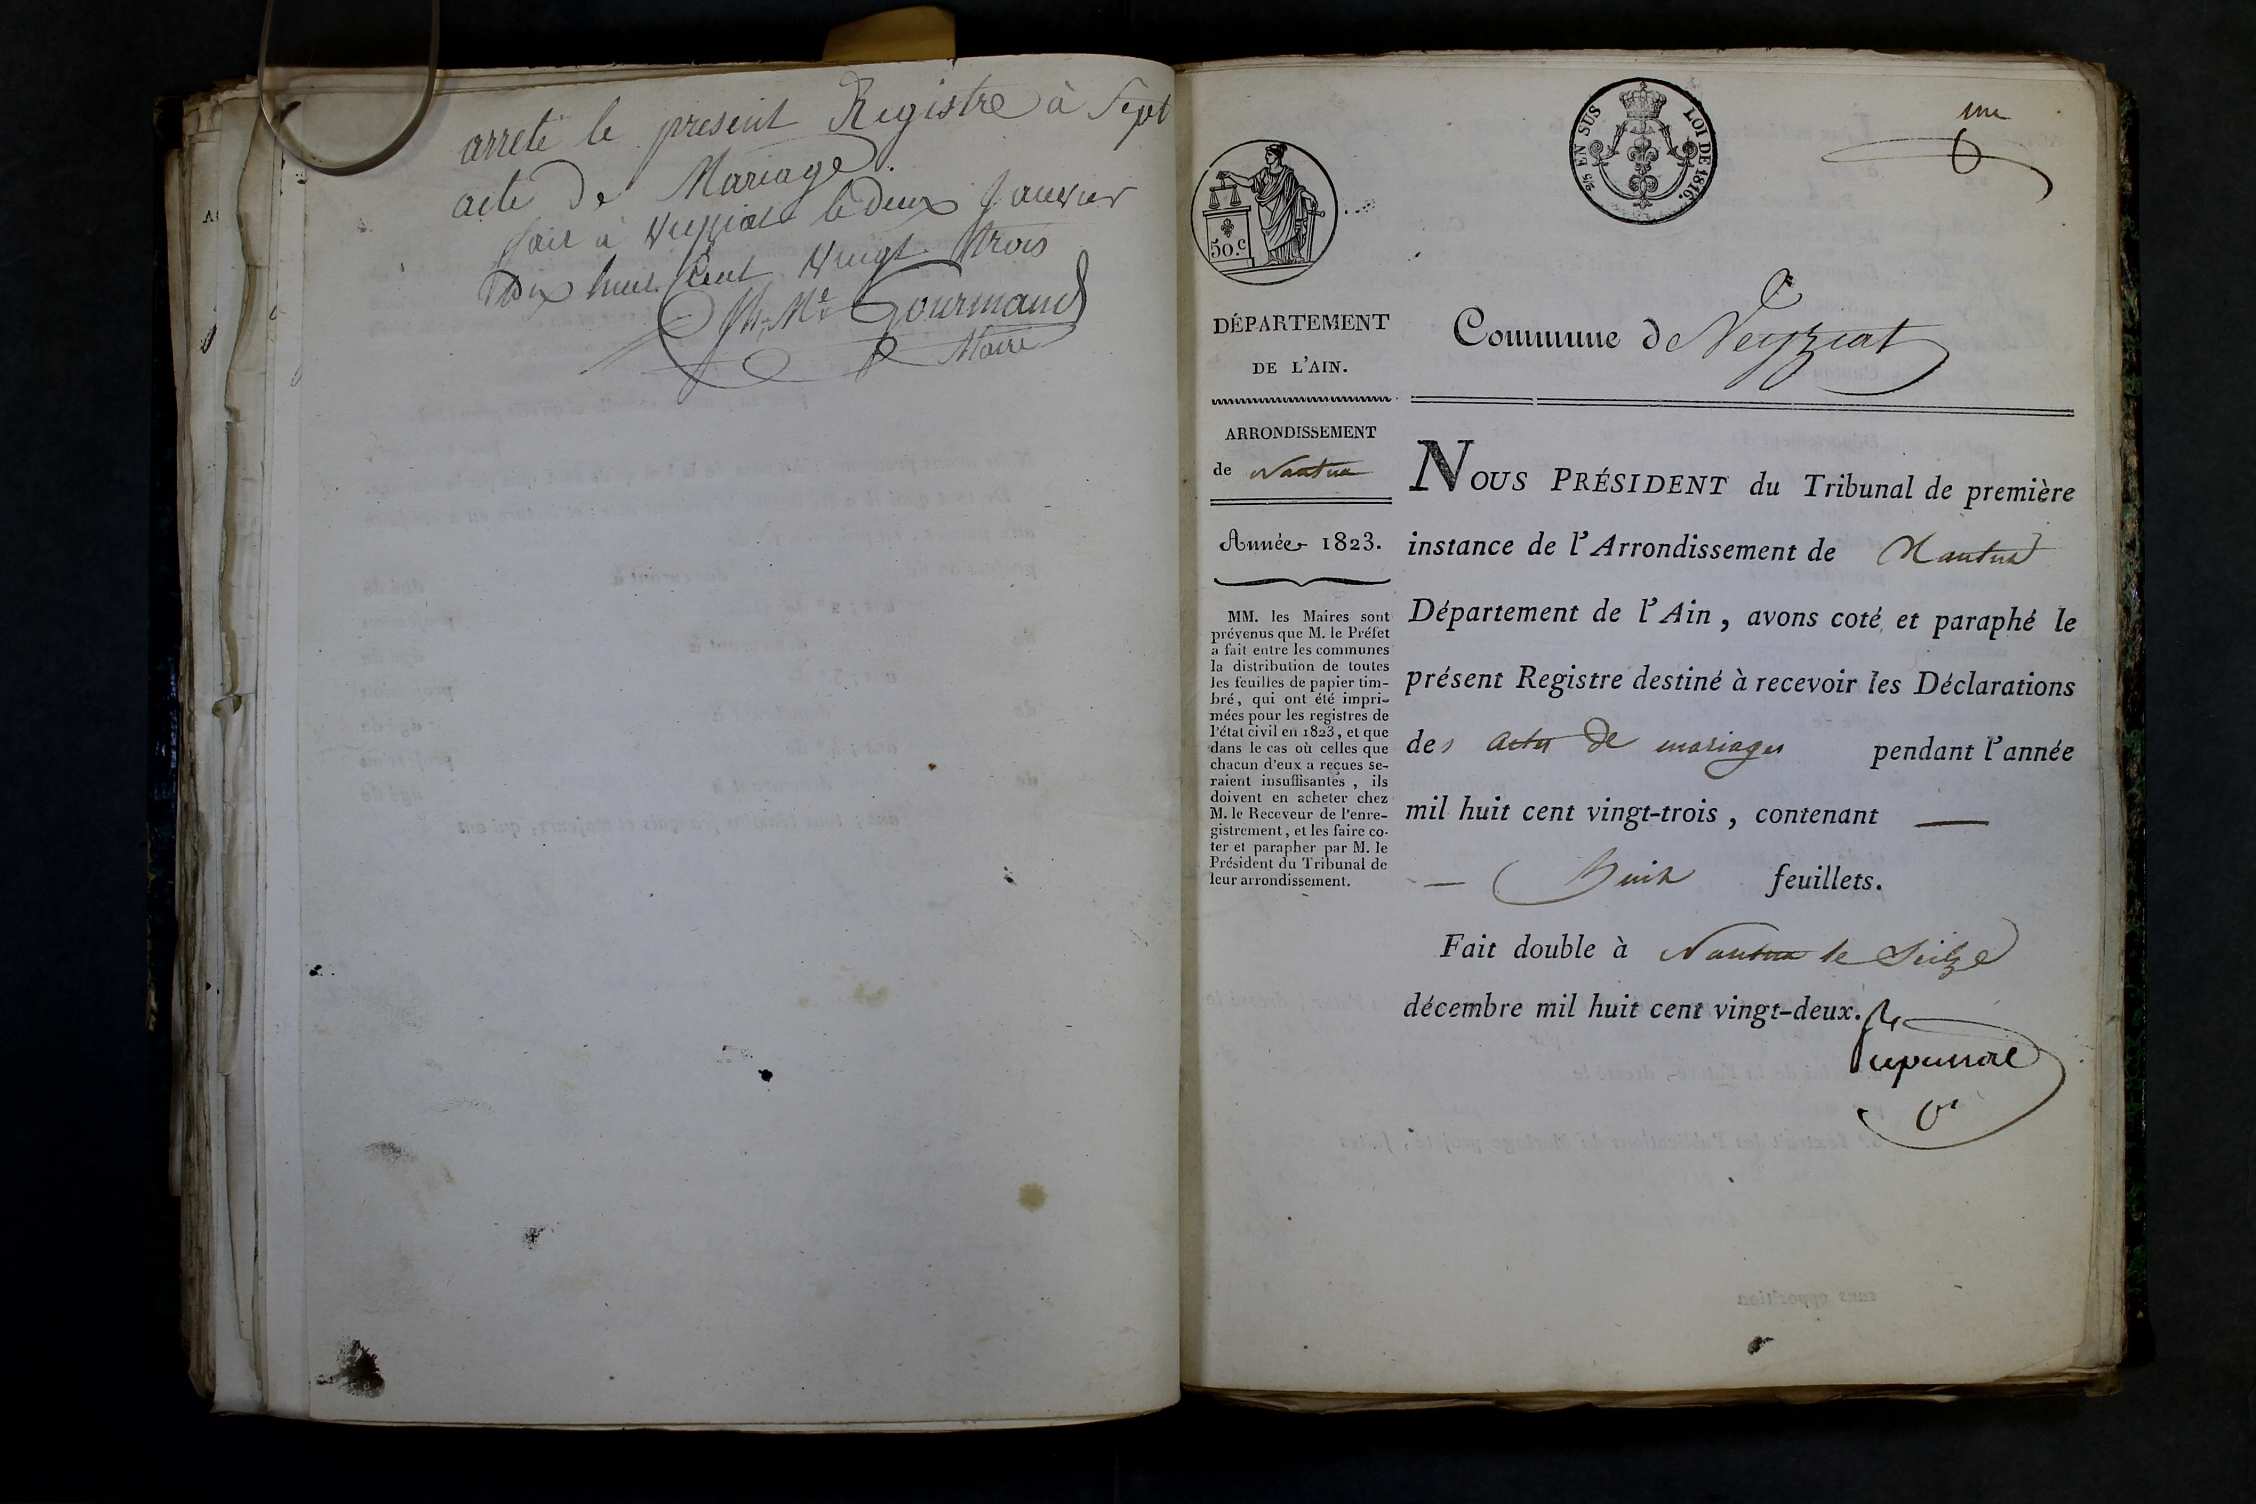 arreté le present Registre à Sept
acte de Mariage
fait à Veyziat le deux Janvier
Dix huit Cent Vingt Trois
Gourmand
Maire
2/5 EN SUS LOI DE 1816.
50.c
DÉPARTEMENT
DE L'AIN.
ARRONDISSEMENT
de Nantua
Année 1823.
MM. les Maires sont
prévenus que M. le Préfet
a fait entre les communes
la distribution de toutes
les feuilles de papier tim-
bré, qui ont été impri-
mées pour les registres de
l'état civil en 1823, et que
dans le cas où celles que
chacun d'eux a reçues se-
raient insuffisantes, ils
doivent en acheter chez
M. le Receveur de l'enre-
gistrement, et les faire co-
ter et parapher par M. le
Président du Tribunal de
leur arrondissement.
Commune de Veyziat
NOUS PRÉSIDENT du Tribunal de première
instance de l'Arrondissement de Nantua
Département de l'Ain, avons coté et paraphé le
présent Registre destiné à recevoir les Déclarations
des actes de mariages pendant l'année
mil huit cent vingt-trois, contenant —
— huit feuillets.
Fait double à Nantua le Seize
décembre mil huit cent vingt-deux.